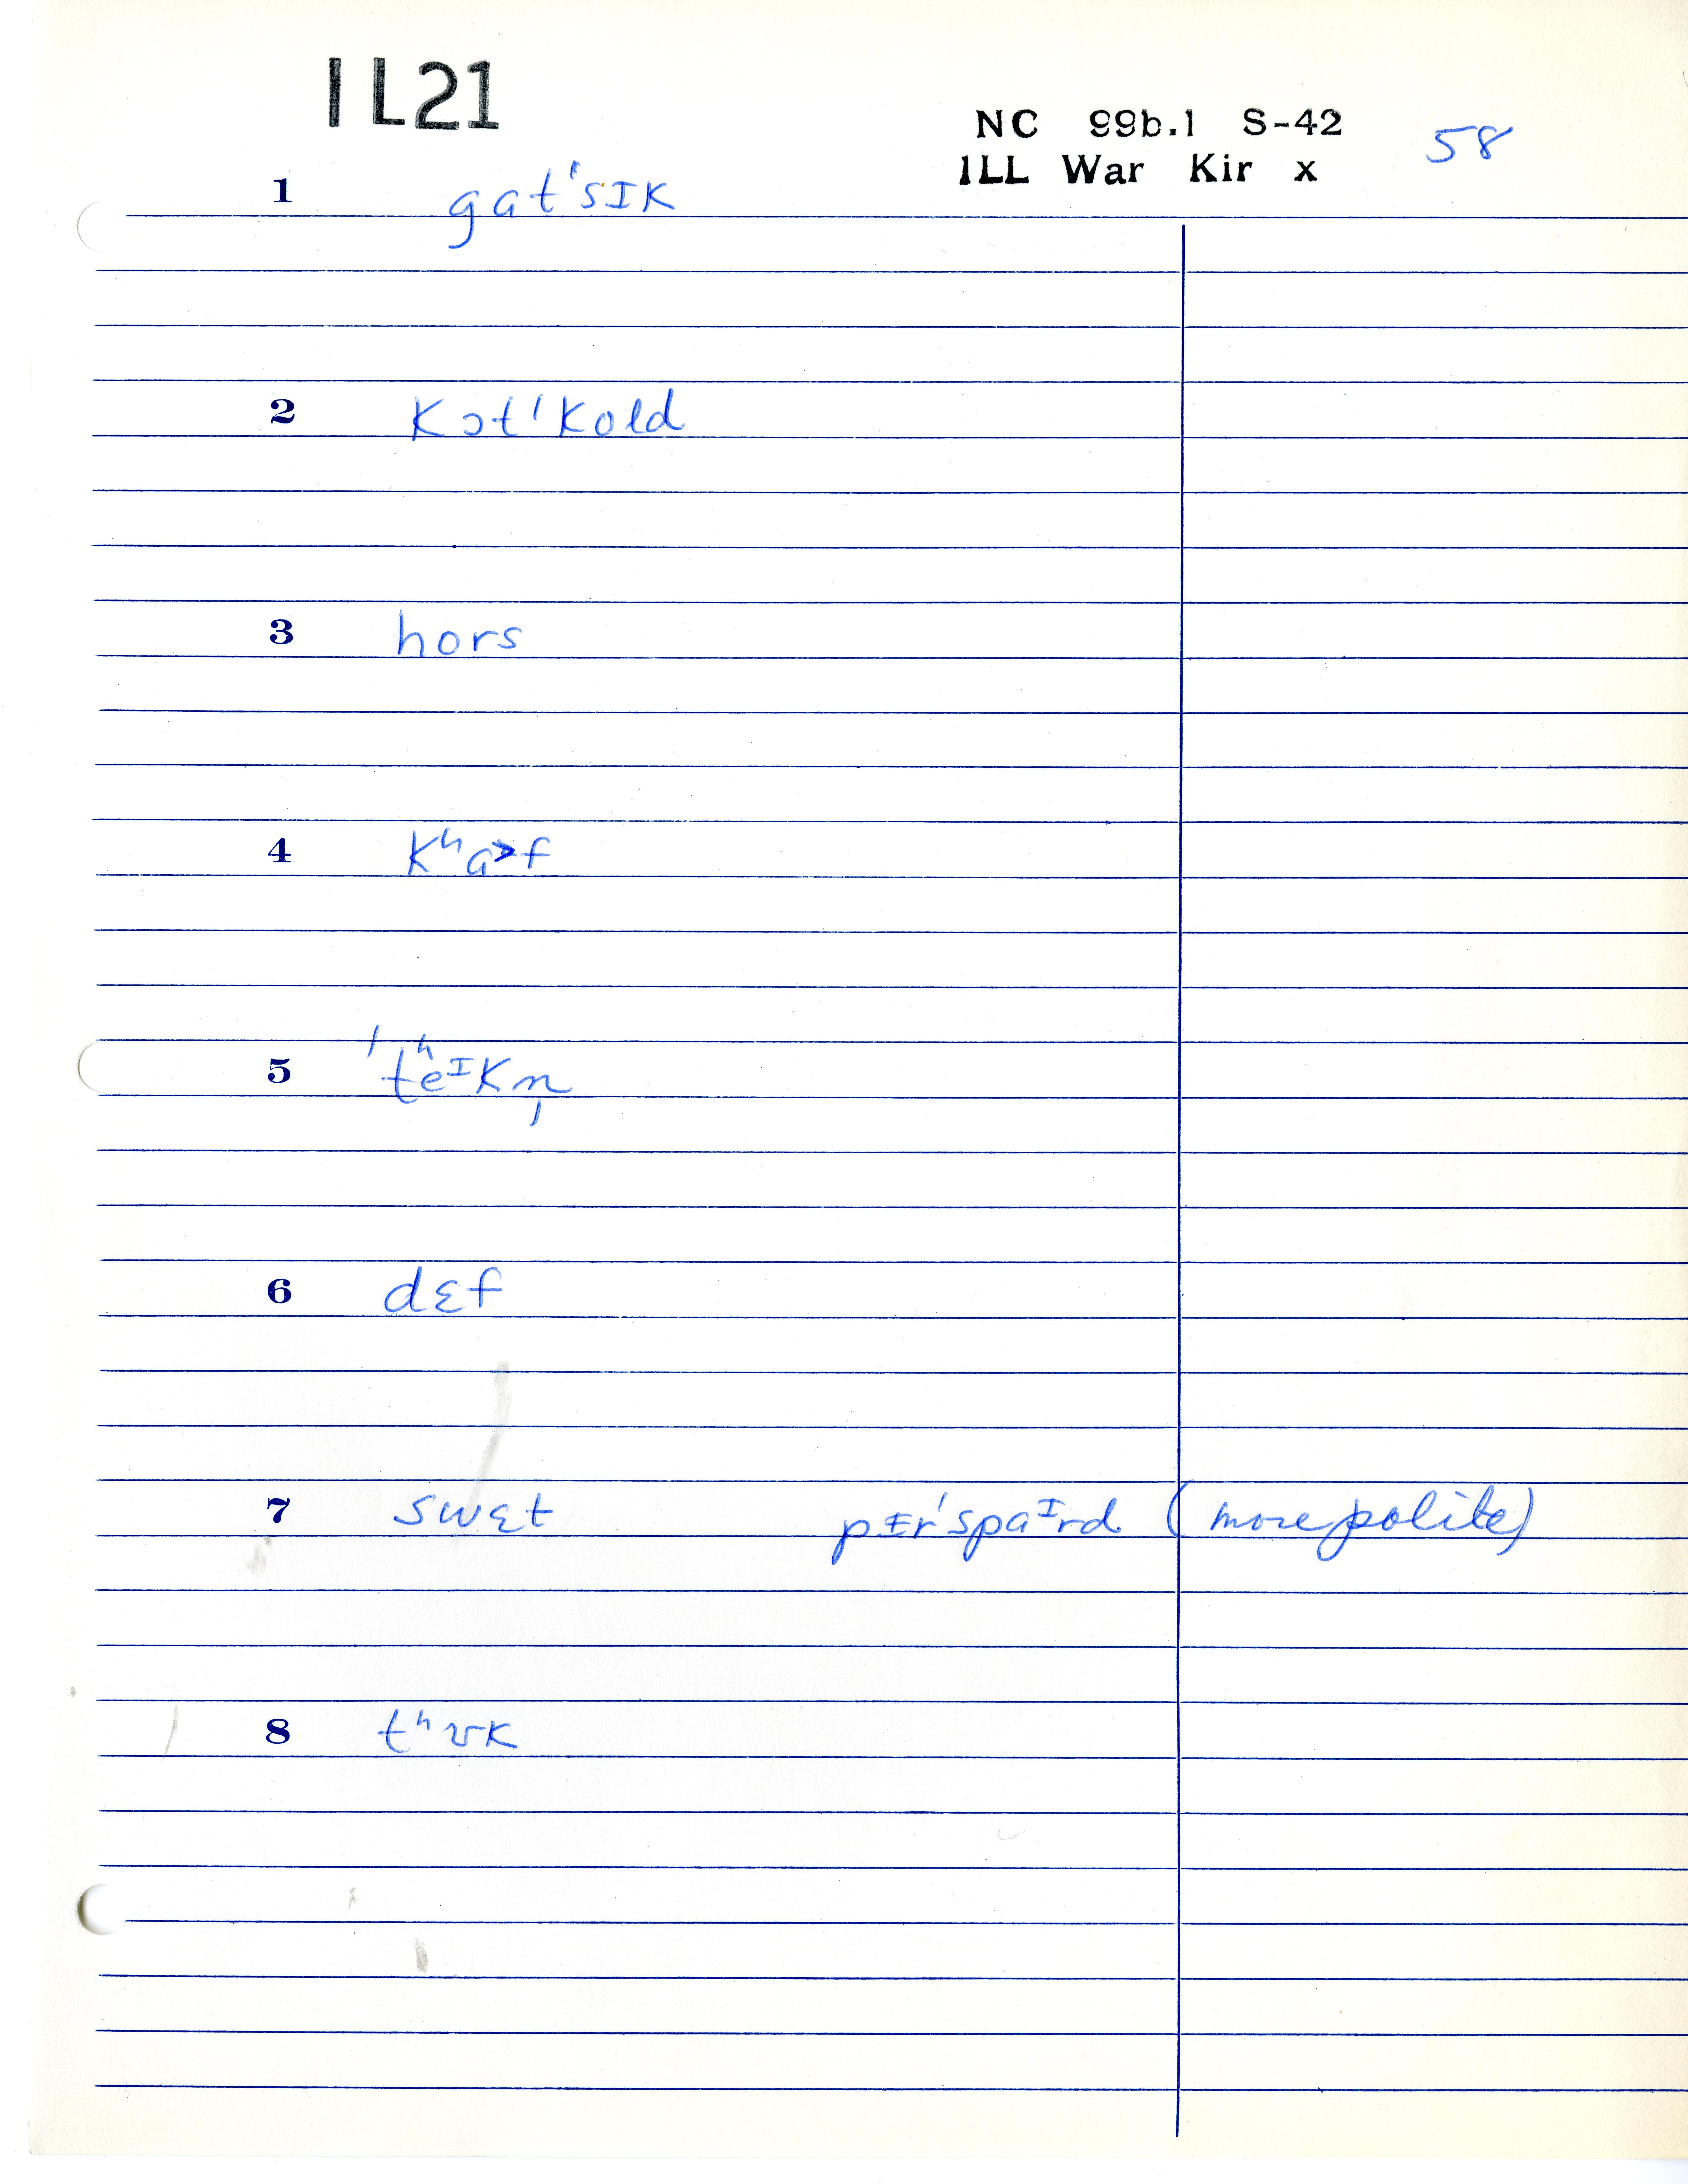 IL21
NC 99b.1 S-42 58
ILL War Kir x
1 gat'sɪk
2 kɔt'kold
3 hors
4 kʰɑ>f
5 'tʰeᴵkn̩
6 dɛf
7 swɛt pɪr'spaᴵrd (more polite)
8 tʰʊk